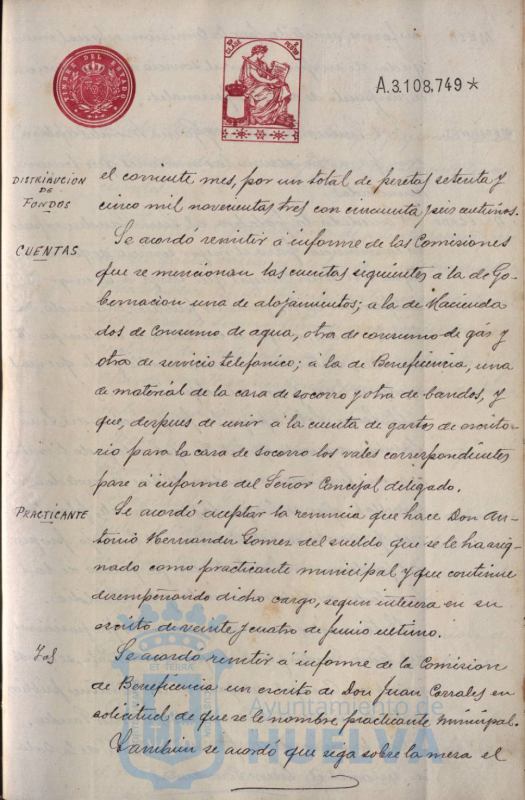 TIMBRE DEL ESTADO
A.3.108.749*
DISTRIBUCION
DE
FONDOS
el corriente mes, por un total de pesetas setenta y
cinco mil novecientas tres con cincuenta y seis centimos.
CUENTAS
Se acordó remitir á informe de las Comisiones
que se mencionan las cuentas siguientes á la de Go-
bernacion una de alojamientos; á la de Hacienda
dos de consumo de agua, otra de consumo de gás y
otra de servicio telefonico; á la de Beneficencia, una
de material de la casa de socorro y otra de bandos, y
que, despues de unir á la cuenta de gastos de escrito-
rio para la casa de socorro los vales correspondientes
pase á informe del Señor Concejal delegado.
PRACTICANTE
Se acordó aceptar la renuncia que hace Don An-
tonio Hernandez Gomez del sueldo que se le ha asig-
nado como practicante municipal y que continue
desempeñando dicho cargo, segun interesa en su
escrito de veinte y cuatro de Junio ultimo.
Se acordó remitir á informe de la Comision
de Beneficencia un escrito de Don Juan Corrales en
solicitud de que se le nombre practicante municipal.
Tambien se acordó que siga sobre la mesa el
Ayuntamiento de
HUELVA